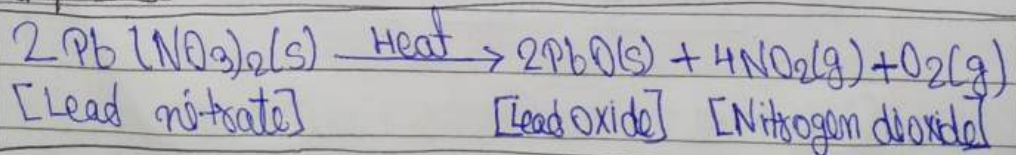 2Pb(NO3)2(s) Heat → 2PbO(s) + 4NO2(g) + O2(g)
[Lead nitrate] [Lead oxide] [Nitrogen dioxide]